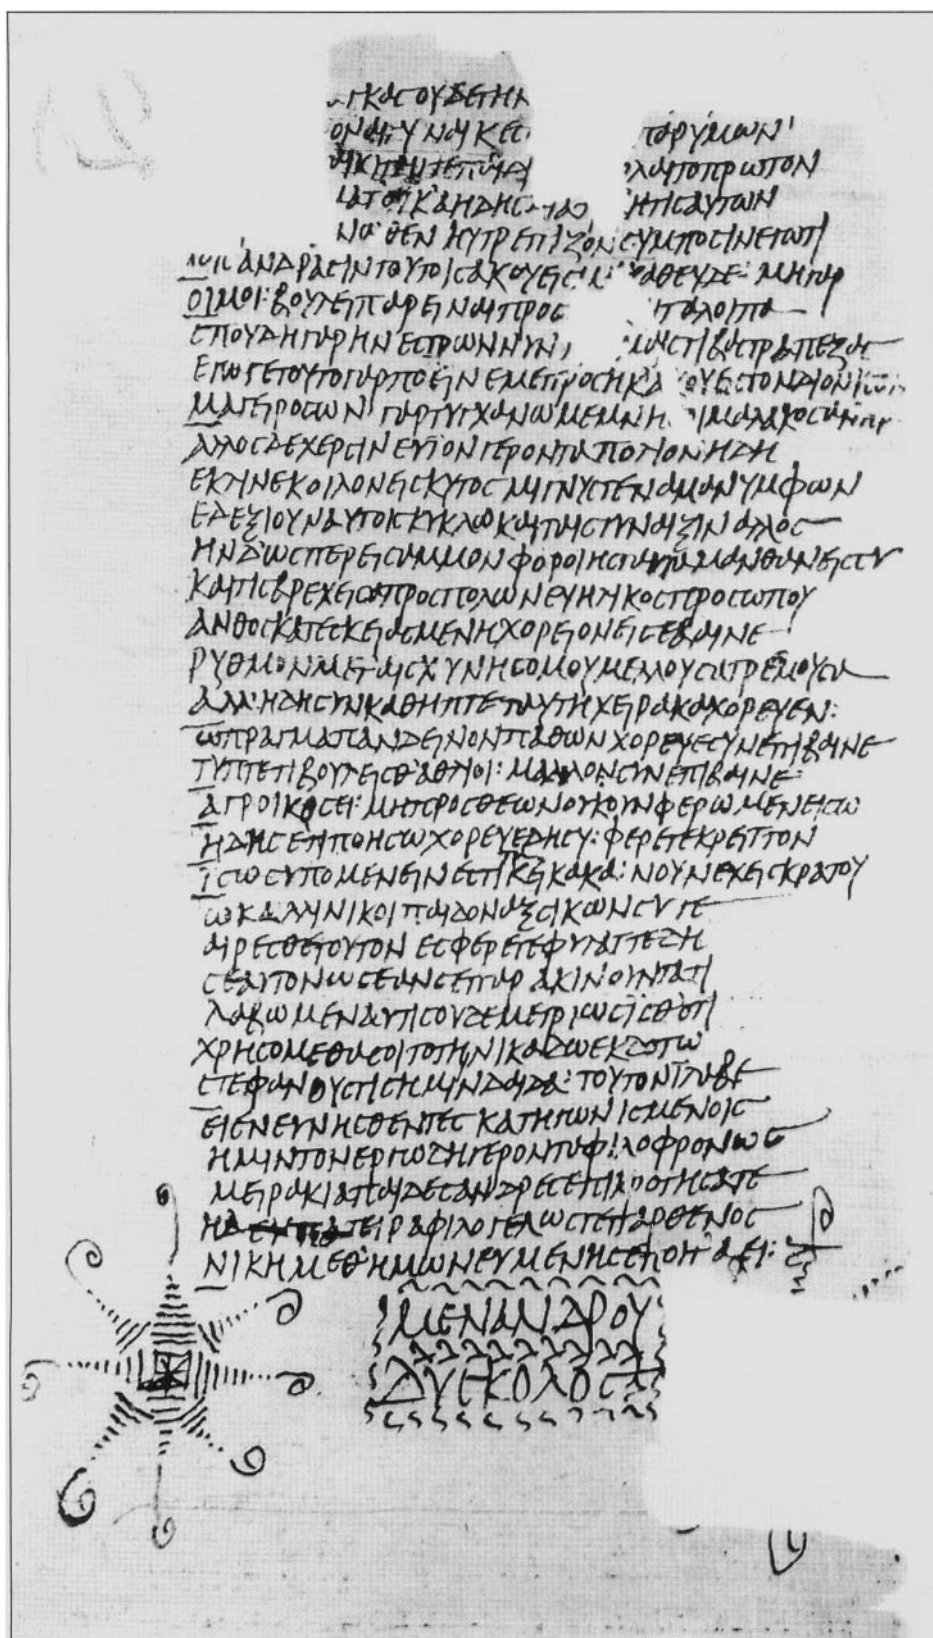 ΓΚΑϹΟΥΔΕΠΗ
ΟΝΑΙΓΥΝΑΙΚΕϹ ΤΑΡΥΜΩΝ
ΛΑΤΟΠΡΩΤΟΝ
ΗΤΙϹΑΥΤΩΝ
ΝΩΘΕΝ ΗΥΤΡΕΠΙΖΟΝ ϹΥΜΠΟϹΙΝΕΓΩΤΙ
ΑΝΔΡΑϹΙΝΤΟΥΤΟΙϹΑΚΟΥΕΙϹ ΚΑΘΕΥΔΕ: ΜΗΓΑΡ
ΟΙΜΟΙ: ΒΟΥΛΕΙΠΑΡΕΙΝΑΙΠΡΟϹ ΤΑΛΟΙΠΑ
ϹΠΟΥΔΗΓΑΡΗΝΕϹΤΡΩΝΝΥΝ ΜΑΙϹΤΙΒΑϹΤΡΑΠΕΖΑϹ
ΕΓΩΓΕΤΟΥΤΟΓΑΡΠΟΕΙΝΕΜΕΠΡΟϹΗΚ ΟΥΕΙϹ
ΜΑΓΕΙΡΟϹΩΝ ΓΑΡΤΥΓΧΑΝΩΜΕΜΝΗ ΜΑΛΑΚΟϹ
ΑΛΛΟϹΔΕΧΕΡϹΙΝΕΥΙΟΝΓΕΡΟΝΤΑΠΟΛΙΟΝΗΔΗ
ΕΚΛΙΝΕΚΟΙΛΟΝΕΙϹΚΥΤΟϹΜΙΓΝΥϹΤΕΝΑΜΑΝΥΜΦΩΝ
ΕΔΕΞΙΟΥΝΑΥΤΟΙϹΚΥΚΛΩΚΑΙΤΑΙϹΓΥΝΑΙΞΙΝΑΛΛΟϹ
ΗΝΔΩϹΠΕΡΕΙϹΑΜΜΟΝΦΟΡΟΙΗϹΤΑΥΤΑΜΑΝΘΑΝΕΙϹϹΥ
ΚΑΙΤΙϹΒΡΕΧΕΙϹΑΠΡΟϹΠΟΛΩΝΕΥΗΛΙΚΟϹΠΡΟϹΩΠΟΥ
ΑΝΘΟϹΚΑΤΕϹΚΕΙΑϹΜΕΝΗΧΟΡΕΙΟΝΕΙϹΕΒΑΙΝΕ
ΡΥΘΜΟΝΜΕΤΑΙϹΧΥΝΗϹΟΜΟΥΜΕΛΛΟΥϹΑΤΡΕΜΟΥϹΑ
ΑΛΛΗΔΗϹΥΝΚΑΘΗΠΤΕΤΑΥΤΗΧΕΙΡΑΚΑΧΟΡΕΥΕΝ:
ΩΠΡΑΓΜΑΠΑΝΔΕΙΝΟΝΠΑΘΩΝΧΟΡΕΥΕϹΥΝΕΠΙΒΑΙΝΕ
ΤΥΠΤΕΤΙΒΟΥΛΕΙϹΘΑΘΛΙΟΙ: ΜΑΛΛΟΝϹΥΝΕΠΙΒΑΙΝΕ:
ΑΓΡΟΙΚΟϹΕΙ: ΜΗΠΡΟϹΘΕΩΝΟΥΚΟΥΝΦΕΡΩΜΕΝΕΙϹΩ
ΗΔΗϹΕΤΙΠΟΗϹΩΧΟΡΕΥΕΔΗϹΥ: ΦΕΡΕΤΕΚΡΕΙΤΤΟΝ
ΙϹΩϹΥΠΟΜΕΝΕΙΝΕϹΤΙΚΕΙΚΑΚΑ: ΝΟΥΝΕΧΕΙϹΚΡΑΤΟΥ
ΩΚΑΛΛΙΝΙΚΟΙΠΑΙΔΟΝΑΞϹΙΚΩΝϹΥΓΕ
ΑΙΡΕϹΘΕΤΟΥΤΟΝ ΕϹΦΕΡΕΤΕΦΥΛΑΤΤΕΔΗ
ϹΕΑΥΤΟΝΩϹΕΑΝϹΕΠΑΡΑΚΙΝΟΥΝΤΑΤΙ
ΛΑΒΩΜΕΝΑΥΤΙϹΟΥΔΕΜΕΤΡΙΩϹΙϹΘΟΤΙ
ΧΡΗϹΟΜΕΘΑϹΟΙΤΟΤΗΝΙΚΑΔΩΕΚΔΟΤΩ
ϹΤΕΦΑΝΟΥϹΤΙϹΗΜΙΝΔΑΙΔΑ: ΤΟΥΤΟΝΙΛΑΒΕ
ΕΙΕΝΕΥΝΗϹΘΕΝΤΕϹΚΑΤΗΓΩΝΙϹΜΕΝΟΙϹ
ΗΜΙΝΤΟΝΕΡΓΩΔΗΓΕΡΟΝΤΑΦΙΛΟΦΡΟΝΩϹ
ΜΕΙΡΑΚΙΑΠΑΙΔΕϹΑΝΔΡΕϹΕΠΙΚΡΟΤΗϹΑΤΕ
ΤΕΙΡΑΦΙΛΟΓΕΛΩϹΤΕΠΑΡΘΕΝΟϹ
ΝΙΚΗΜΕΘΗΜΩΝΕΥΜΕΝΗϹΕΠΟΙΤΑΕΙ:
ΜΕΝΑΝΔΡΟΥ
ΔΥϹΚΟΛΟϹ